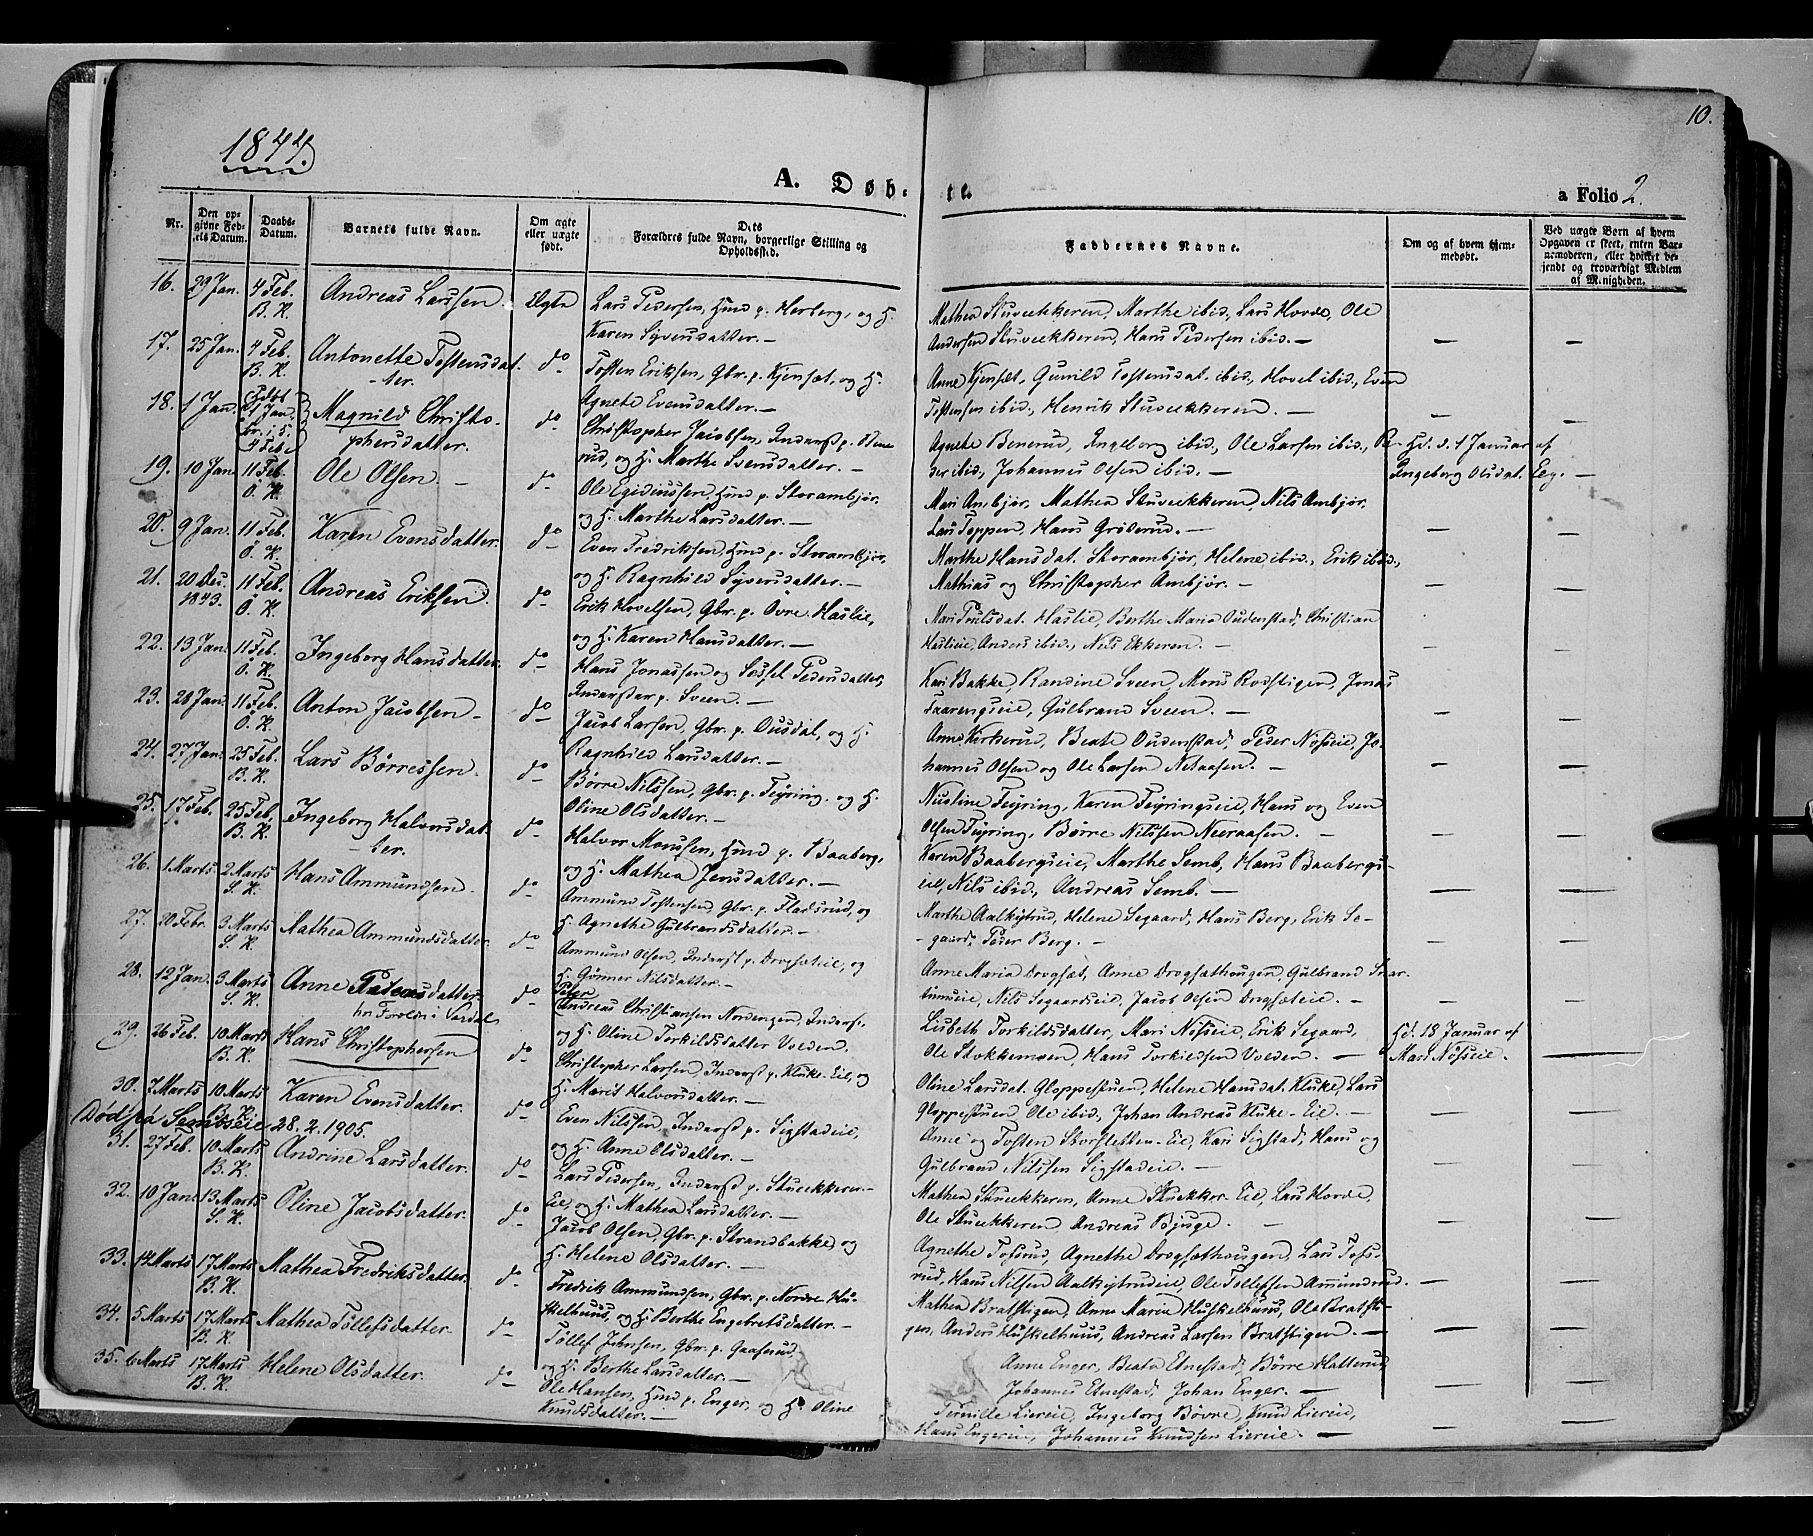 10.
1844
A. Døb-
te.
a Folio 2.
Nr.
Den op-
givne Fød-
sels Datum.
Daabs-
Datum.
Barnets fulde Navn.
Om ægte
eller uægte
født.
Dets
Forældres fulde Navn, borgerlige Stilling og
Opholdssted.
Faddernes Navne.
Om og af hvem hjem-
medøbt.
Ved uægte Børn af hvem
Opgaven er skeet, enten Bar-
nemoderen, eller hvilket be-
kjendt og troværdigt Medlem
af Menigheden.
16. 29 Jan. 4 Feb. Andreas Larssen. Ægte Lars Pedersen, Hmd p. Herberg, og H.
B. K. Karen Syversdatter. —
Mathea Stuveekkeren, Marthe ibid, Lars Hovde, Ole
Andersen Stuveekkeren, Hans Pedersen ibid. —
17. 25 Jan. 4 Feb. Antonette Tostensdat- do Tosten Eriksen, Gbr. p. Kjensæt, og H.
B. K. -ter. Agnete Evensdatter. —
Anne Kjensæt, Gunild Tostensdat. ibid., Hovel ibid., Even
Tostensen ibid., Henrik Stuveekkeren. —
18. 1 Jan. Hdøbt 1 Jan. Magnild Christo- do Christopher Jacobsen, Inderst p. Bene-
4 Feb. phersdatter. rud, og H. Marthe Svensdatter. —
Agnete Benerud, Ingeborg ibid., Ole Larsen ibid., Pe-
der ibid., Johannes Olsen ibid. —
Hd. d. 1 Januar af
Ingeborg Olsdat. Eeg.
19. 10 Jan. 11 Feb. Ole Olsen. — do Ole Egidiussen, Hmd p. Storambjør,
O. K. og H. Marthe Larsdatter. —
Mari Ambjør, Mathea Stuveekkeren, Nils Ambjør,
Lars Toppen, Hans Grøterud. —
20. 9 Jan. 11 Feb. Karen Evensdatter. do Even Fredriksen, Hmd p. Storambjør,
O. K. og H. Ragnhild Syversdatter. —
Marthe Hansdat. Storambjør, Helene ibid., Erik ibid.,
Mathias og Christopher Ambjør. —
21. 20 Dec. 11 Feb. Andreas Eriksen. do Erik Hovelsen, Gbr. p. Øvre Haslie,
1843. O. K. og H. Karen Hansdatter. —
Mari Poulsdat. Haslie, Berthe Maria Oudenstad, Christian
Haslieie, Anders ibid., Nils Ekkeren. —
22. 13 Jan. 11 Feb. Ingeborg Hansdatter. do Hans Jonassen og Sossel Pedersdatter,
O. K. Inderster p. Sveen. —
Kari Bakke, Randine Sveen, Mons Rodstigen, Jonas
Faarengseie, Gulbrand Sveen. —
23. 28 Jan. 11 Feb. Anton Jacobsen — do Jacob Larsen, Gbr. p. Ousdal, og H.
O. K. Ragnhild Larsdatter. —
Anne Kirkerud, Beate Oudenstad, Peder Nøsseie, Jo-
hannes Olsen og Ole Larsen Netaasen. —
24. 27 Jan. 25 Feb. Lars Børressen. do Børre Nilssen, Gbr. p. Feyring, og H.
B. K. Oline Olsdatter. —
Nusline Feyring, Karen Feyringseie, Hans og Even
Olsen Feyring, Børre Nilssen Neeraasen. —
25. 17 Feb. 25 Feb. Ingeborg Halvorsdat- do Halvor Monssen, Hmd p. Baaberg,
B. K. -ter. og H. Mathea Jensdatter. —
Karen Baabergseie, Marthe Semb, Hans Baabergs-
eie, Nils ibid., Andreas Semb. —
26. 1 Marts 2 Marts Hans Ammundsen. do Ammund Tostensen, Gbr. p. Fladsrud, og
S. K. H. Agnethe Gulbrandsdatter. —
Marthe Aalkistrud, Helene Segaard, Hans Berg, Erik Se-
-gaard, Peder Berg. —
27. 20 Febr. 3 Marts Mathea Ammundsdatter. do Ammund Olsen, Inderst p. Drogsæteie, og
S. K. H. Gønner Nilsdatter. —
Anne Maria Drogsæt, Anne Drogsæthougen, Gulbrand Snar-
tumseie, Nils Segaardseie, Jacob Olsen Drogsæteie. —
28. 12 Jan. 3 Marts Anne Petersdatter. do Peter
S. K. hr. Foreldr. i Vardal Andreas Christiansen Nordengen, Inderst,
og H. Oline Torkildsdatter Volden.
Lisbeth Torkildsdatter, Mari Nøsseie, Erik Segaard,
Ole Stokkemoen, Hans Torkildsen Volden. —
Hd. 18 Januar af
Mari Nøsseie.
29. 26 Feb. 10 Marts Hans Christophersen do Christopher Larsen, Inderst p. Kluke-Eie, og
B. K. H. Marit Halvorsdatter. —
Oline Larsdat. Gloppestuen, Helene Hansdat. Kluke, Lars
Gloppestuen, Ole ibid., Johan Andreas Kluke-Eie. —
30. 7 Marts 10 Marts Karen Evensdatter. do Even Nilssen, Inderst p. Sigstadeie,
B. K. og H. Anne Olsdatter. —
Død fra Sembseie 28.2.1905.
Anne og Tosten Storsletten-Eie, Kari Sigstad, Hans og
Gulbrand Nilssen Sigstadeie. —
31. 27 Feb. 10 Marts Andrine Larsdatter. do Lars Pedersen, Inderst p. Stueekkeren-
B. K. Eie, og H. Mathea Larsdatter. —
Mathea Stueekkeren, Anne Stueekker-Eie, Lars Hovde,
Ole Stueekkeren, Andreas Bjuge. —
32. 10 Jan. 13 Marts Oline Jacobsdatter. do Jacob Olsen, Gbr. p. Strandbakke, og
S. K. H. Helene Olsdatter. —
Agnethe Tosrud, Agnethe Drogsæthougen, Lars Tofs-
rud, Hans Nilsen Aalkistrudeie, Ole Tollefsen Ammundrud. —
33. 14 Marts 17 Marts Mathea Fredriksdatter. do Fredrik Ammundsen, Gbr. p. Nordre Hu-
B. K. skelhuus, og H. Berthe Engebretsdatter. —
Mathea Bratstigen, Anne Marie Huskelhuus, Ole Bratsti-
gen, Anders Huskelhuus, Andreas Larsen Bratstigen. —
34. 5 Marts 17 Marts Mathea Tollefsdatter. do Tollef Johnsen, Gbr. p. Gaaserud,
B. K. og H. Berthe Larsdatter. —
Anne Enger, Beata Etnestad, Børre Hatterud,
Johannes Etnestad, Johan Enger. —
35. 6 Marts 17 Marts Helene Olsdatter. do Ole Hansen, Hmd p. Enger, og H. Oline
B. K. Knudsdatter. —
Pernille Liereie, Ingeborg Bøvre, Knud Liereie,
Hans Engereie, Johannes Knudsen Liereie. —